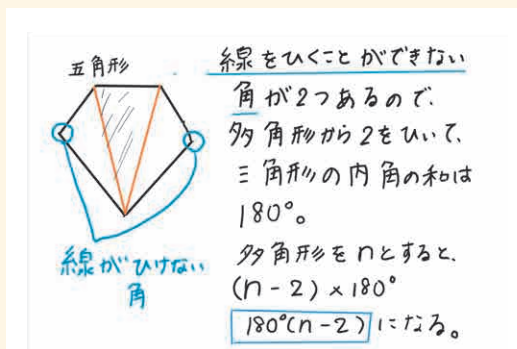 五角形
線をひくことができない
角が2つあるので、
多角形から2をひいて、
三角形の内角の和は
180°。
多角形をnとすると、
(n-2)×180°
180°(n-2)になる。
線がひけない
角